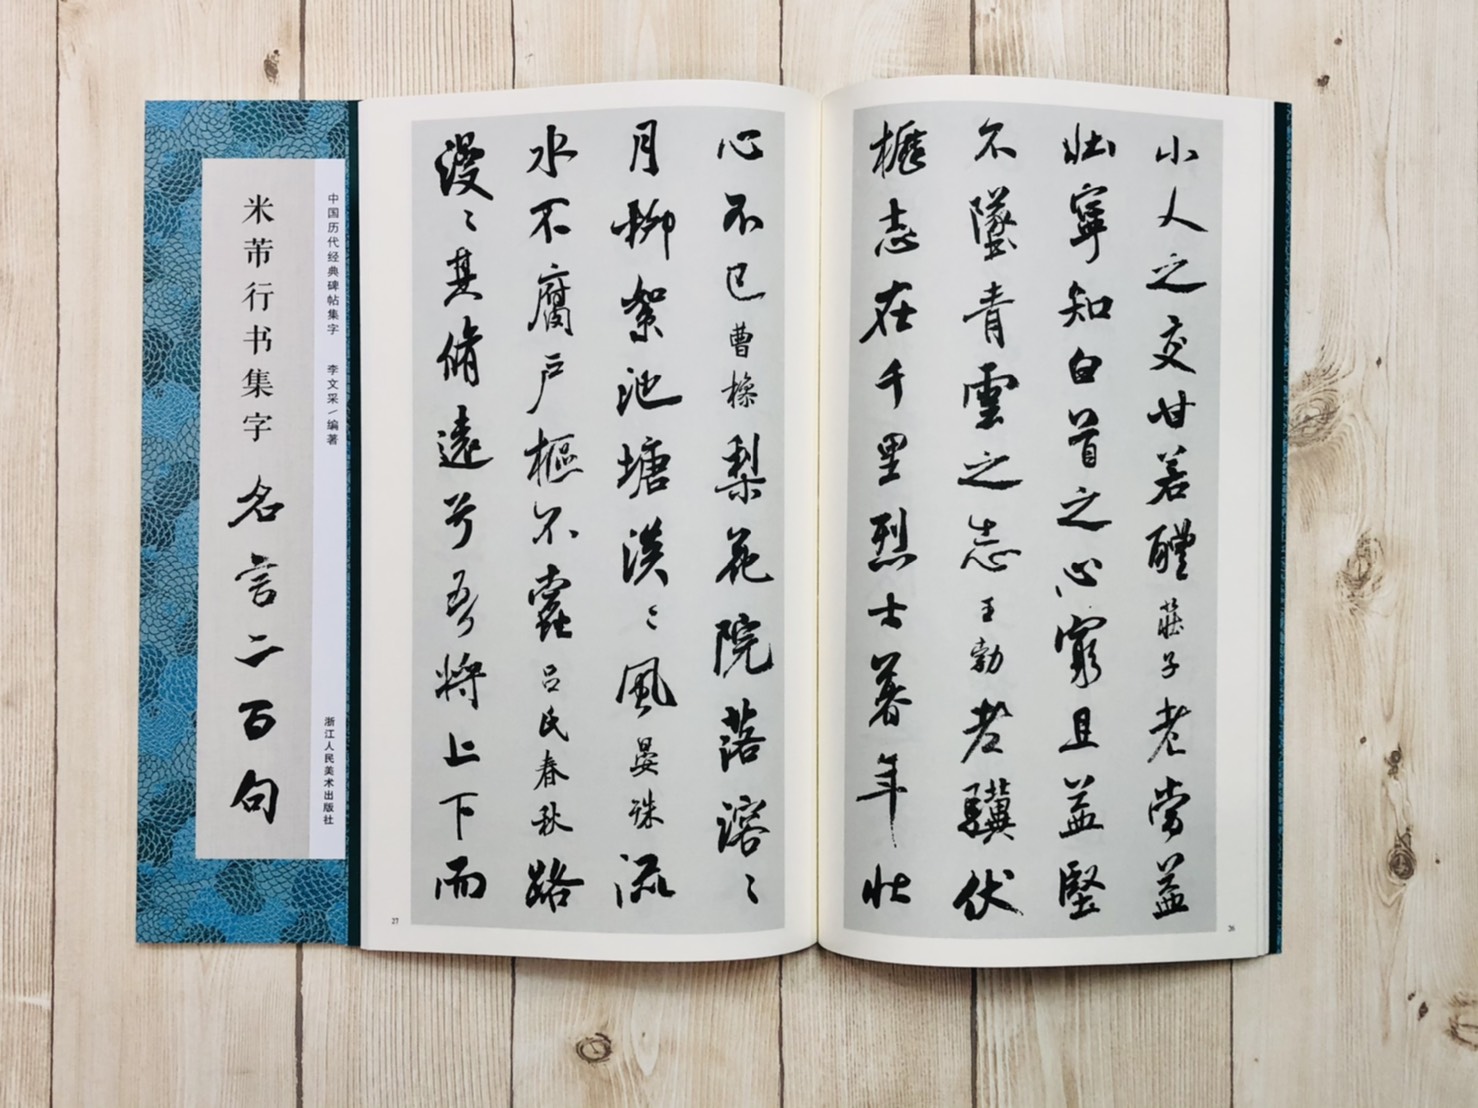 小人之交甘若醴莊子老當益
壮寧知白首之心窮且益堅
不墜青雲之志王勃老驥伏
櫪志在千里烈士暮年壮
26
心不已曹操梨花院落溶〻
月柳絮池塘淡〻風晏殊流
水不腐戶樞不蠹吕氏春秋路
漫〻其脩遠兮吾將上下而
27
中国历代经典碑帖集字 李文采/编著 浙江人民美术出版社
米芾行书集字 名言二百句